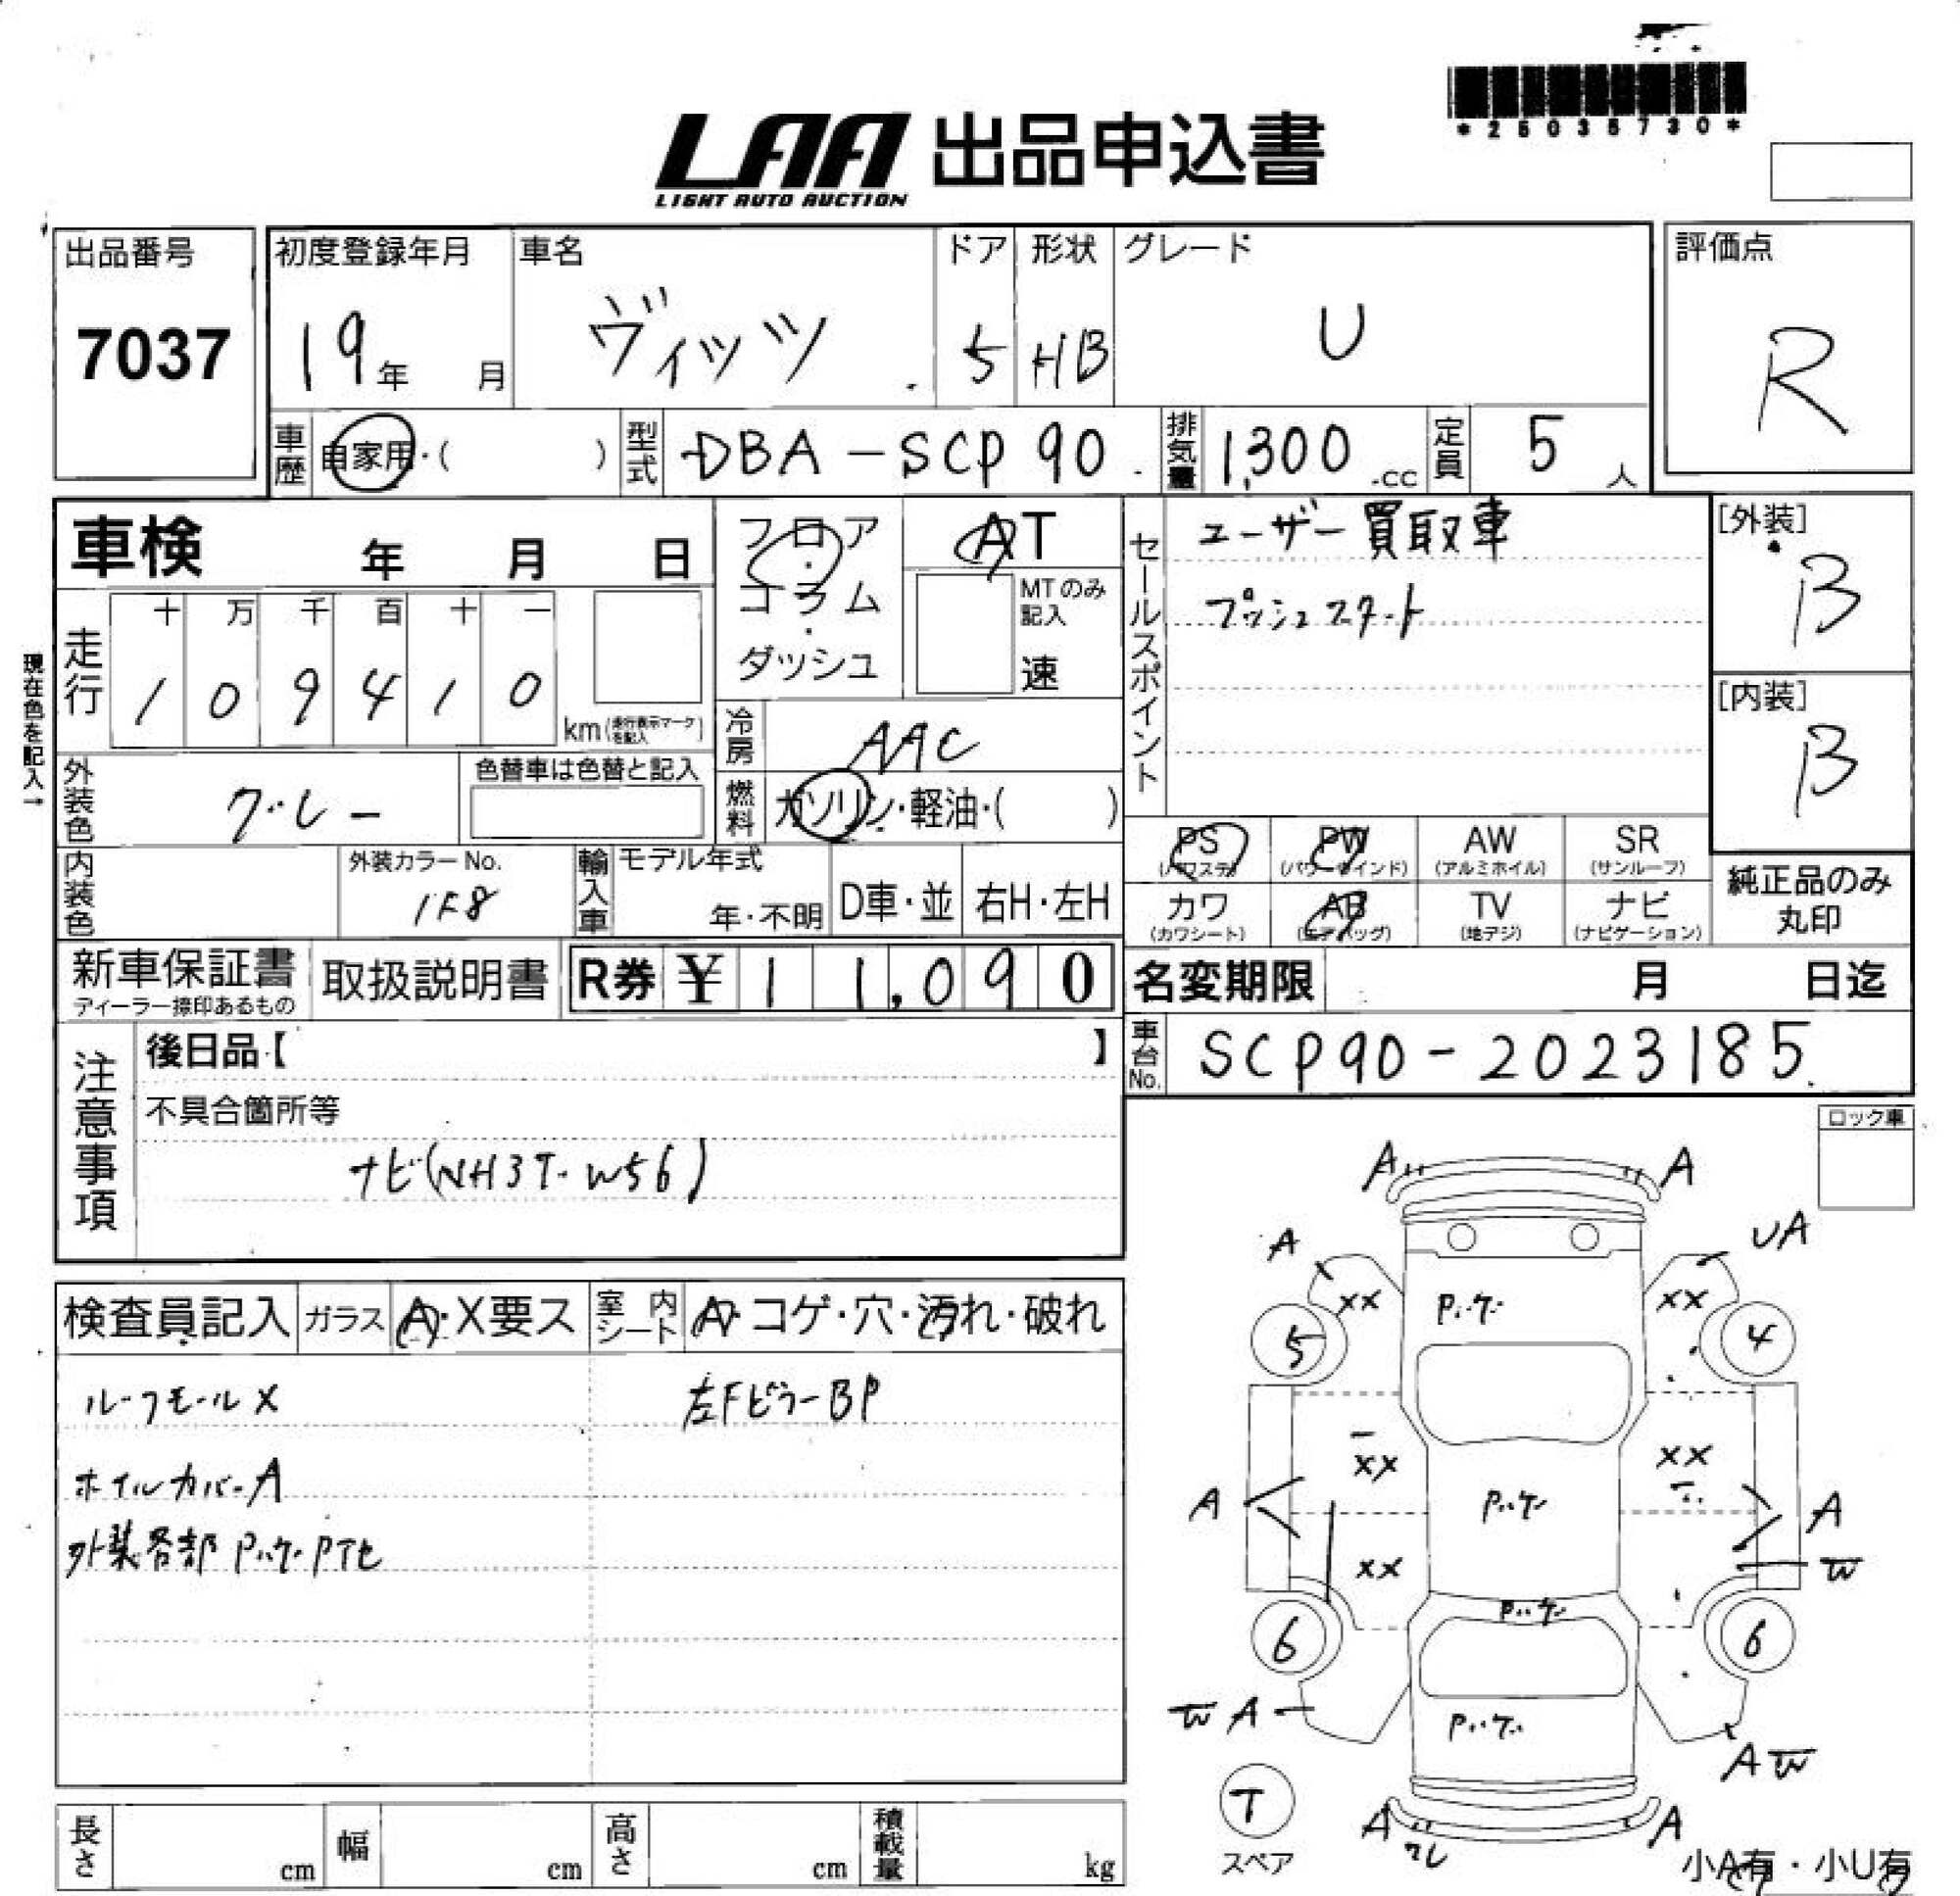 *25035730*
LAA 出品申込書
LIGHT AUTO AUCTION
出品番号
7037
初度登録年月
19年 月
車名
ヴィッツ
ドア
5
形状
HB
グレード
U
評価点
R
車歴 自家用・( )
型式 DBA-SCP90
排気量 1,300 .cc
定員 5 人
車検 年 月 日
フロア・コラム・ダッシュ
AT
MTのみ記入
速
現在色を記入→
走行
十 万 千 百 十 一
1 0 9 4 1 0
km(走行表示マークを記入)
冷房 AAC
燃料 ガソリン・軽油・( )
外装色 グレー
色替車は色替と記入
内装色
外装カラーNo.
1F8
輸入車
モデル年式
年・不明
D車・並
右H・左H
セールスポイント
ユーザー買取車
プッシュスタート
[外装]
B
[内装]
B
PS (パワステ)
PW (パワーウインド)
AW (アルミホイル)
SR (サンルーフ)
カワ (カワシート)
AB (エアバッグ)
TV (地デジ)
ナビ (ナビゲーション)
純正品のみ丸印
新車保証書
ディーラー捺印あるもの
取扱説明書
R券 ¥ 11,090
名変期限 月 日迄
車台No. SCP90-2023185
注意事項
後日品【 】
不具合箇所等
ナビ(NH3T-W56)
ロック車
検査員記入
ガラス A・X要ス
室内シート A・コゲ・穴・汚れ・破れ
ルーフモールX
左FピラーBP
ホイルカバーA
外装各部 Pッケ PTセ
A A
A UA
XX Pッケ XX
5 4
XX XX
A Pッケ A
XX W
Pッケ
6 6
WA Pッケ
AW
T
スペア
A ワレ A
小A有・小U有
長さ cm
幅 cm
高さ cm
積載量 kg